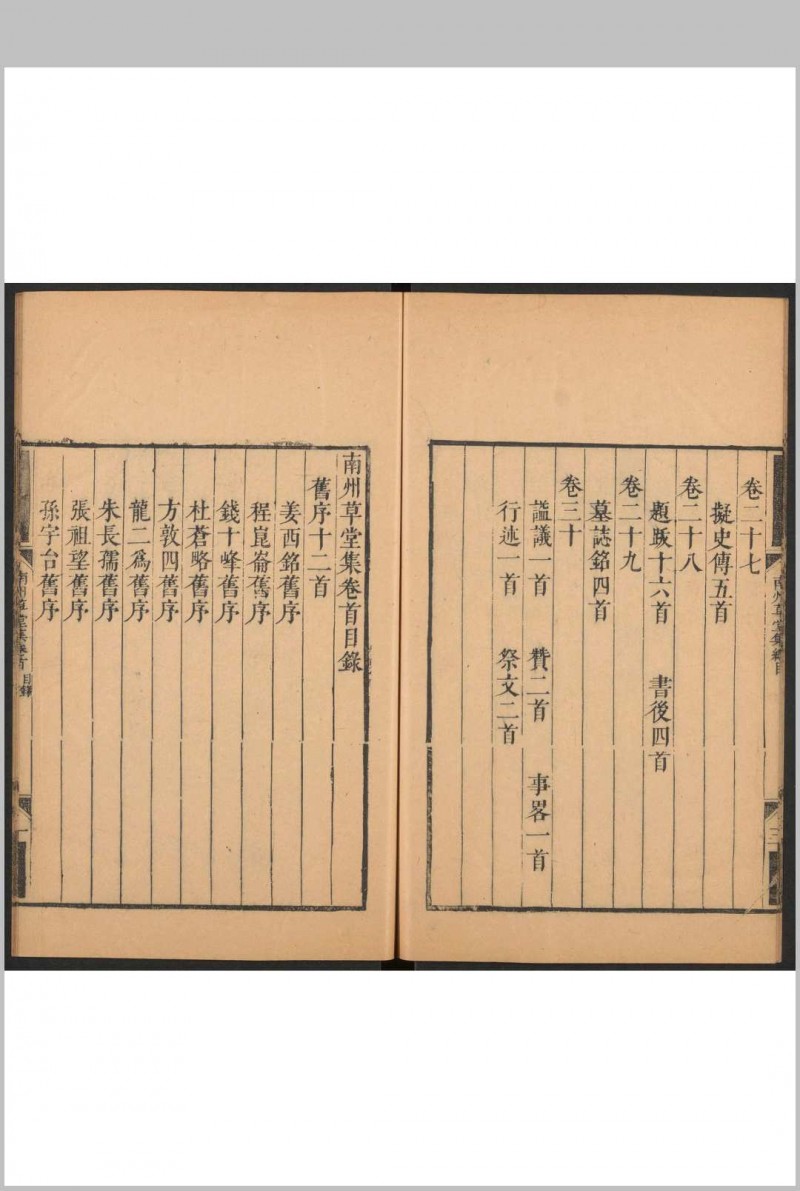 卷二十七
擬史傳五首
卷二十八
題跋十六首 書後四首
卷二十九
墓誌銘四首
卷三十
謚議一首 贊二首 事畧一首
行述一首 祭文二首
南州草堂集卷首目錄
舊序十二首
姜西銘舊序
程崑崙舊序
錢十峰舊序
杜蒼略舊序
方敦四舊序
龍二為舊序
朱長孺舊序
張祖望舊序
孫宇台舊序
南州草堂集卷首 目錄
一
南州草堂集 總目
三